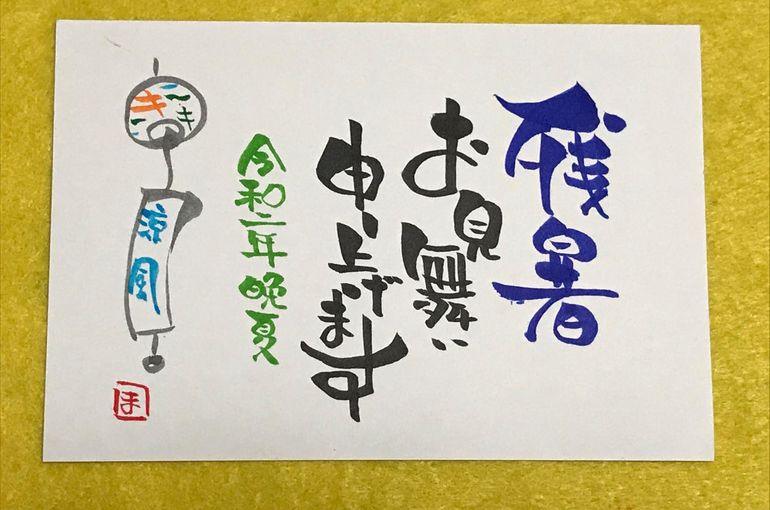 残暑
お見舞い
申し上げます
令和二年 晩夏
涼風
ま